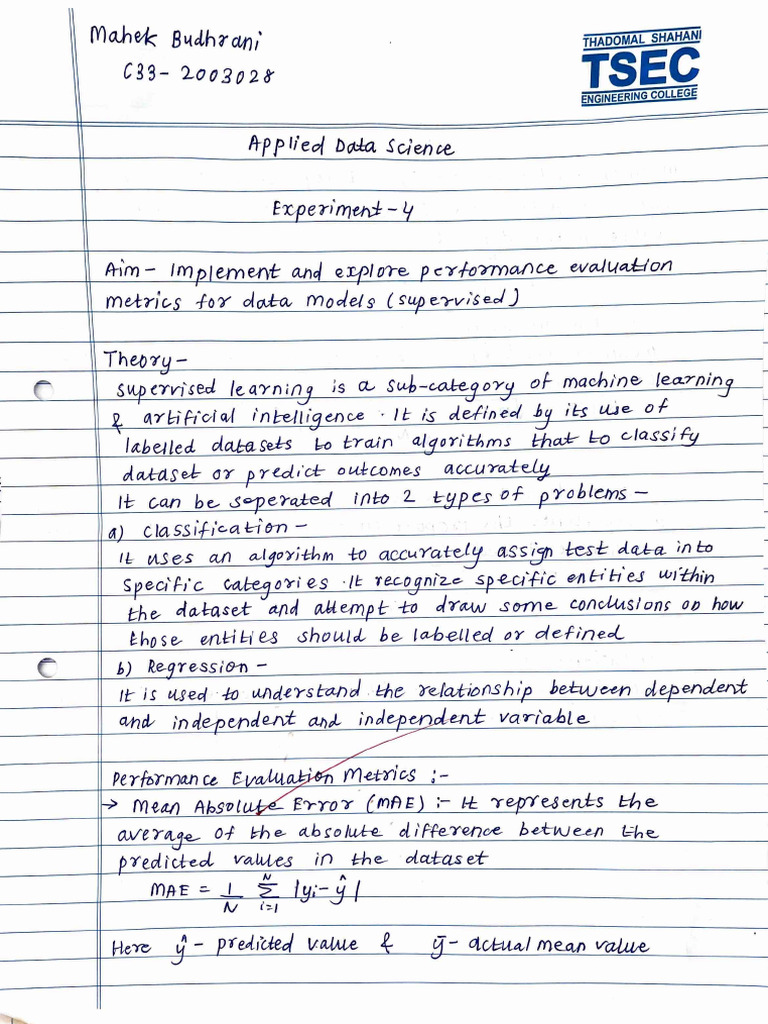 Mahek Budhrani
C33-2003028
THADOMAL SHAHANI
TSEC
ENGINEERING COLLEGE
Applied Data Science
Experiment-4
Aim- Implement and explore performance evaluation
metrics for data models (supervised)
Theory-
Supervised learning is a sub-category of machine learning
& artificial intelligence. It is defined by its use of
labelled datasets to train algorithms that to classify
dataset or predict outcomes accurately
It can be seperated into 2 types of problems-
a) Classification-
It uses an algorithm to accurately assign test data into
specific categories. It recognize specific entities within
the dataset and attempt to draw some conclusions on how
those entities should be labelled or defined
b) Regression-
It is used to understand the relationship between dependent
and independent and independent variable
Performance Evaluation Metrics :-
→ Mean Absolute Error (MAE) :- It represents the
average of the absolute difference between the
predicted values in the dataset
MAE = 1/N N∑i=1 |yi-ŷ|
Here ŷ - predicted value & ȳ- actual mean value